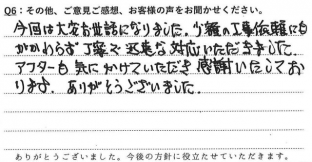 Q6：その他、ご意見ご感想、お客様の声をお聞かせください。
今回は大変お世話になりました。少額の工事依頼にも
かかわらず丁寧で迅速な対応いただきました。
アフターも気にかけていただき感謝いたしてお
ります。ありがとうございました。
ありがとうございました。今後の方針に役立たせていただきます。